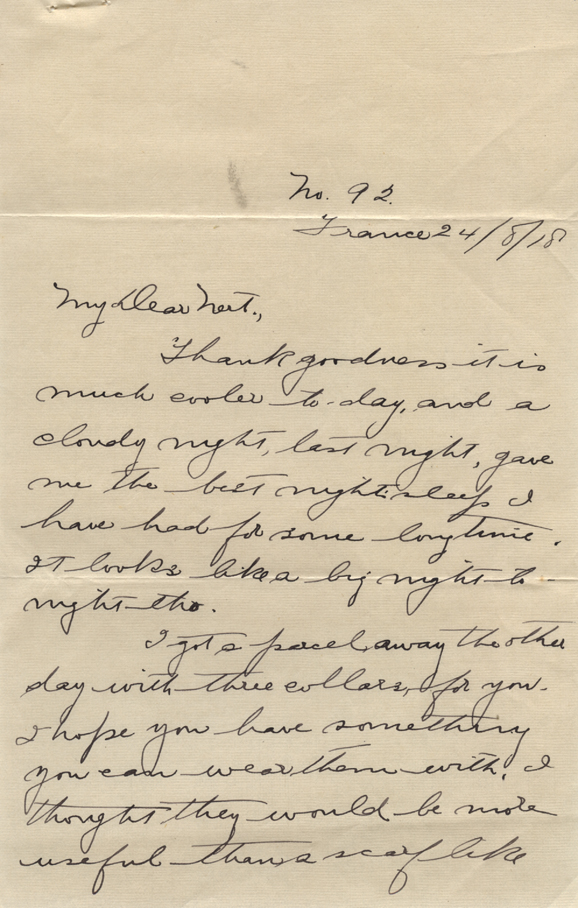 No. 92.
France 24/8/18
My Dear Nert.,
Thank goodness it is
much cooler to-day, and a
cloudy night, last night, gave
me the best night's sleep I
have had for some long time.
It looks like a big night to-
night tho.
I got a parcel away the other
day with three collars, for you.
I hope you have something
you can wear them with, I
thought they would be more
useful than a scarf like